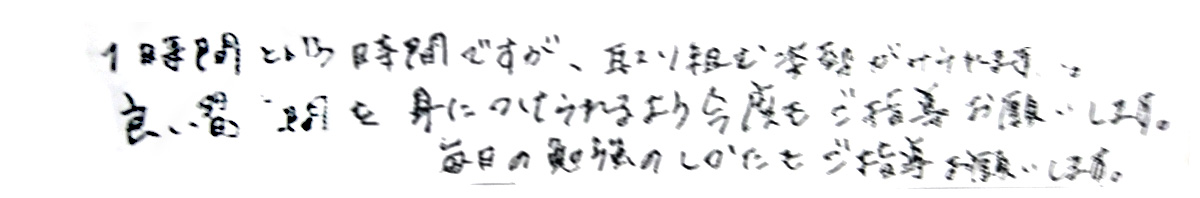 1時間という時間ですが、取り組む姿勢がみられます。
良い習慣を身につけられるよう今度もご指導お願いします。
毎日の勉強のしかたもご指導お願いします。